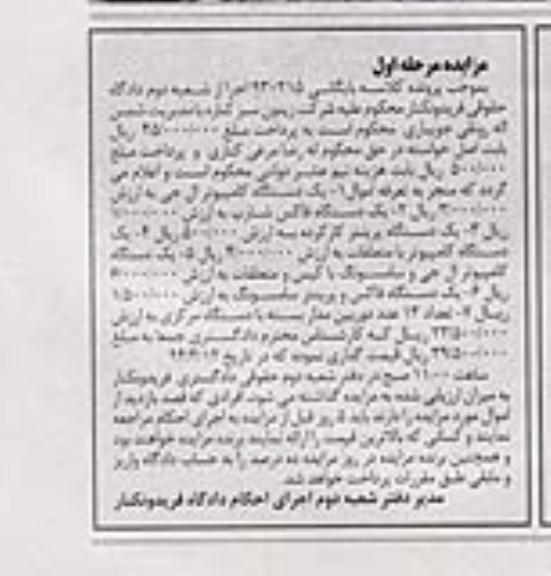 مزایده مرحله اول
بموجب پرونده کلاسه بایگانی ۹۳۰۲۱۵ اجرا از شعبه دوم دادگاه
حقوقی فریدونکنار محکوم علیه شرکت زیتون سبز کناره با مدیریت شمس
اله روشی خوبیاری محکوم است به پرداخت مبلغ ۲۵/۰۰۰/۰۰۰ ریال
بابت اصل خواسته در حق محکوم له رضا مرغی کناری و پرداخت مبلغ
۵۰۰/۰۰۰ ریال بابت هزینه نیم عشر دولتی محکوم است و اعلام می
گردد که منجر به تعرفه اموال ۱- یک دستگاه کامپیوتر ال جی به ارزش
ریال ۲- یک دستگاه فاکس شارپ به ارزش
ریال ۳- یک دستگاه پرینتر کارکرده به ارزش ۵۰۰/۰۰۰ ریال ۴- یک
دستگاه کامپیوتر با متعلقات به ارزش ریال ۵- یک دستگاه
کامپیوتر ال جی و سامسونگ با کیس و متعلقات به ارزش
ریال ۶- یک دستگاه فاکس و پرینتر سامسونگ به ارزش
ریال ۷- تعداد ۱۳ عدد دوربین مدار بسته با دستگاه مرکزی به ارزش
ریال که کارشناس محترم دادگستری جمعا به مبلغ
ریال قیمت گذاری نموده که در تاریخ
ساعت ۱۱:۰۰ صبح در دفتر شعبه دوم حقوقی دادگستری فریدونکنار
به میزان ارزیابی شده به مزایده گذاشته می شود، افرادی که قصد بازدید از
اموال مورد مزایده را دارند باید ۵ روز قبل از مزایده به اجرای احکام مراجعه
نمایند و کسانی که بالاترین قیمت را ارائه نمایند برنده مزایده خواهند بود
و همچنین برنده مزایده در روز مزایده ده درصد را به حساب دادگاه واریز
و مابقی طبق مقررات پرداخت خواهد شد.
مدیر دفتر شعبه دوم اجرای احکام دادگاه فریدونکنار